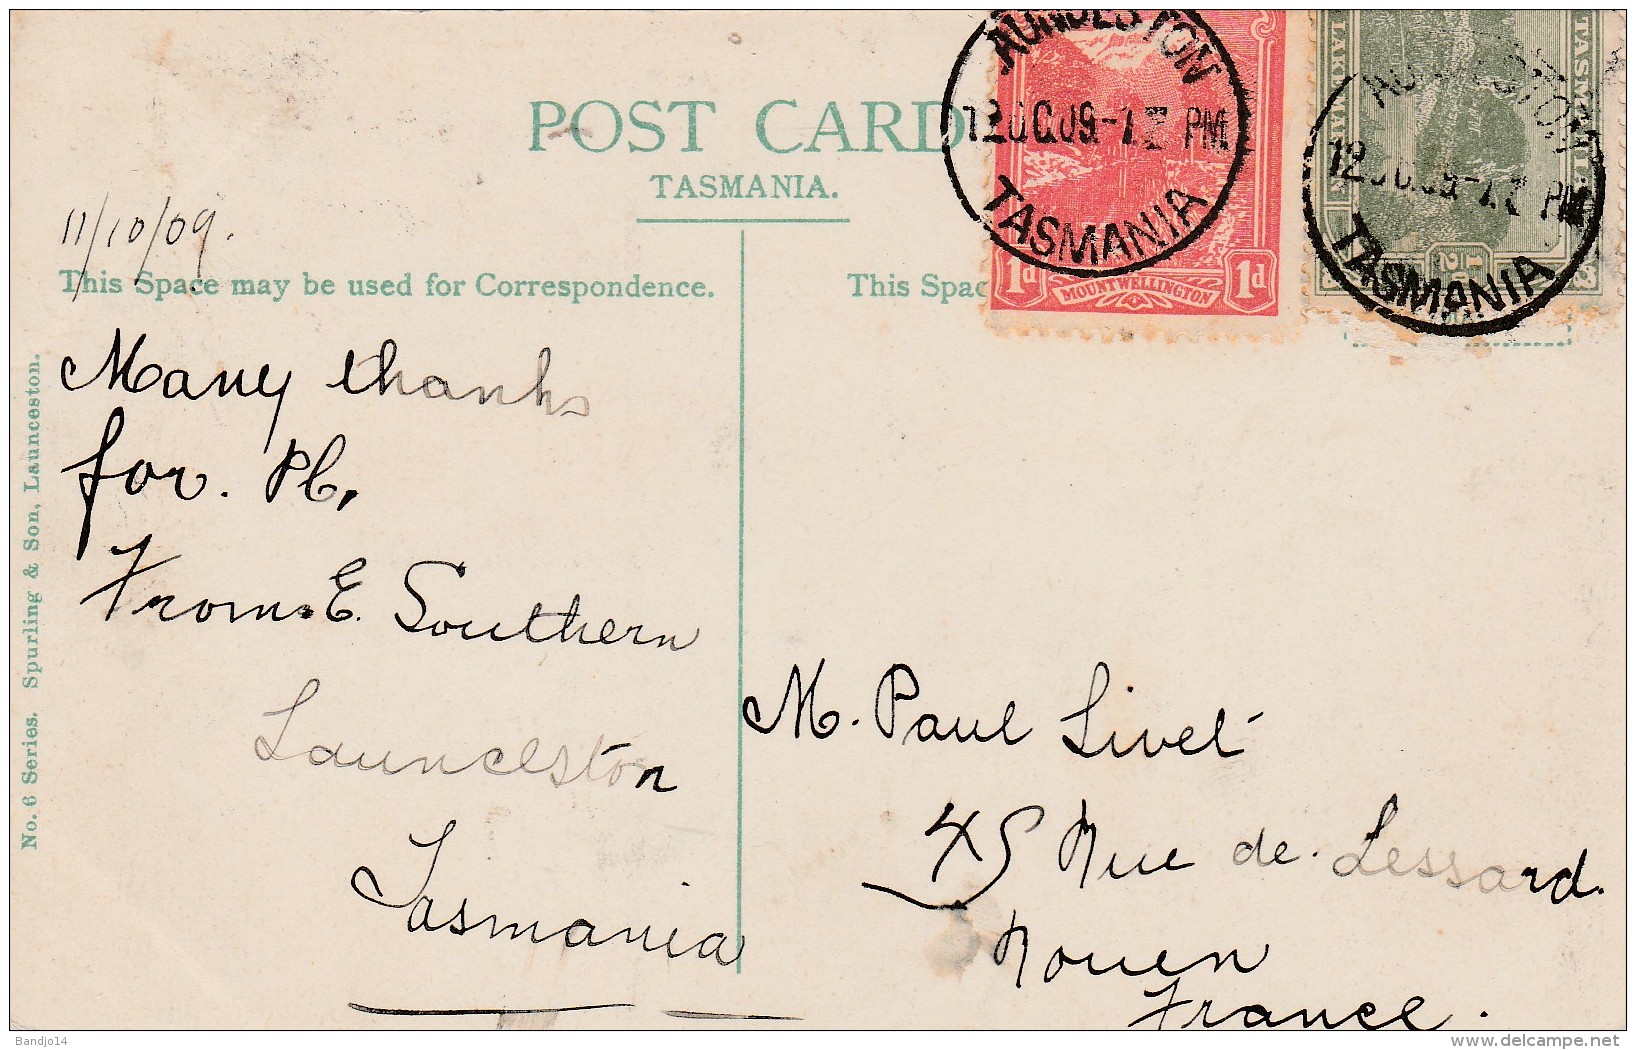 POST CARD
TASMANIA.
11/10/09.
This Space may be used for Correspondence.
This Spac
Many thanks
for. Pc,
From. E. Southern
Launceston
Tasmania
M. Paul Livet
45 Rue de. Lessard.
Rouen
France.
No. 6 Series. Spurling & Son, Launceston.
TASMANIA
1d MOUNT WELLINGTON 1d
12 PM
TASMANIA
TASMANIA
Bandjo14
www.delcampe.net